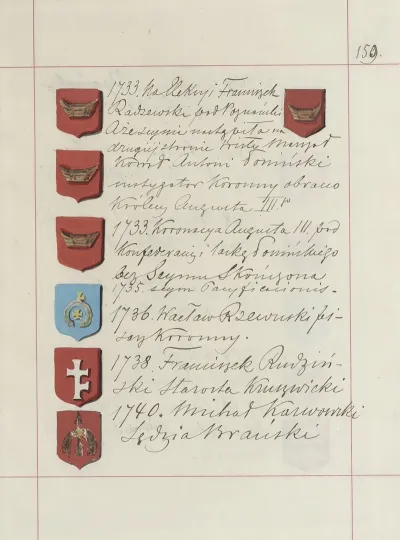 159.
1733. Na Elekcyi Franciszek
Radzewski pod Poznański
A że seymu nastąpiła na
drugiéj stronie Wisły Marszał
Konrd Antoni Poniński
instygator Koronny obrano
Królem Augusta III go
1733. Koronacya Augusta III. pod
Konfederacyi laską Ponińskiego
bez Seymu Skończona
1735. seym Pacyficacionis.
1736. Wacław Rzewuski pi-
sarz Koronny.
1738. Franciszek Rudziń-
ski Starosta Kruszwicki
1740. Michał Karwowski
Sędzia Brański